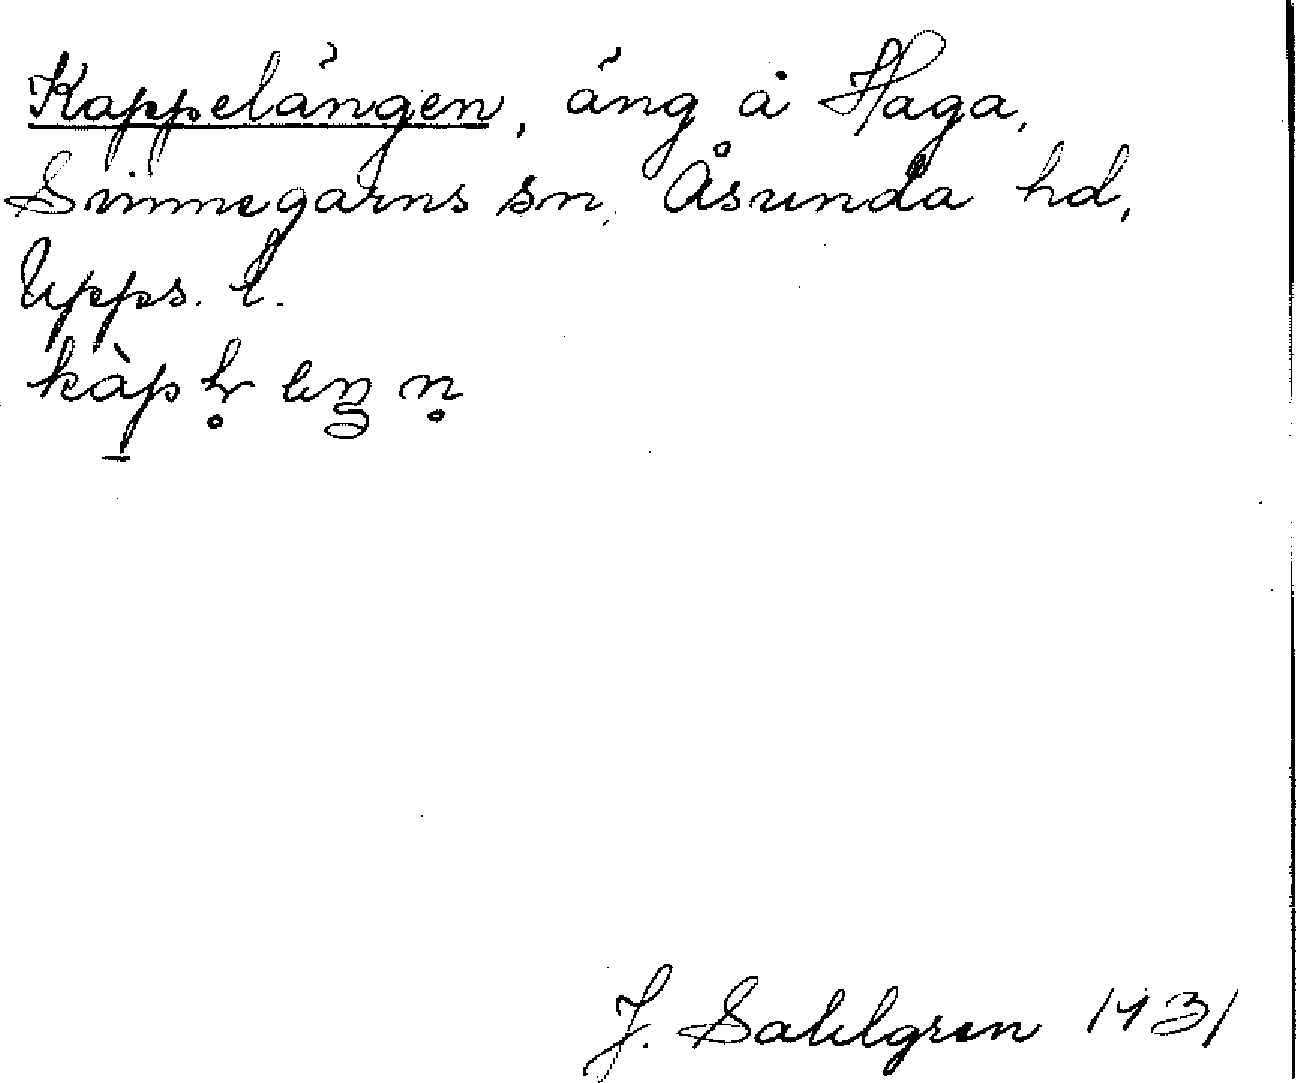 Kappelängen, äng å Haga,
Svinnegarns sn, Åsunda hd,
Upps. l.
J. Sahlgren 1931